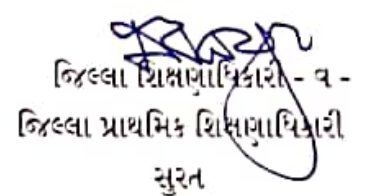 જિલ્લા શિક્ષણાધિકારી - વ -
જિલ્લા પ્રાથમિક શિક્ષણાધિકારી
સુરત